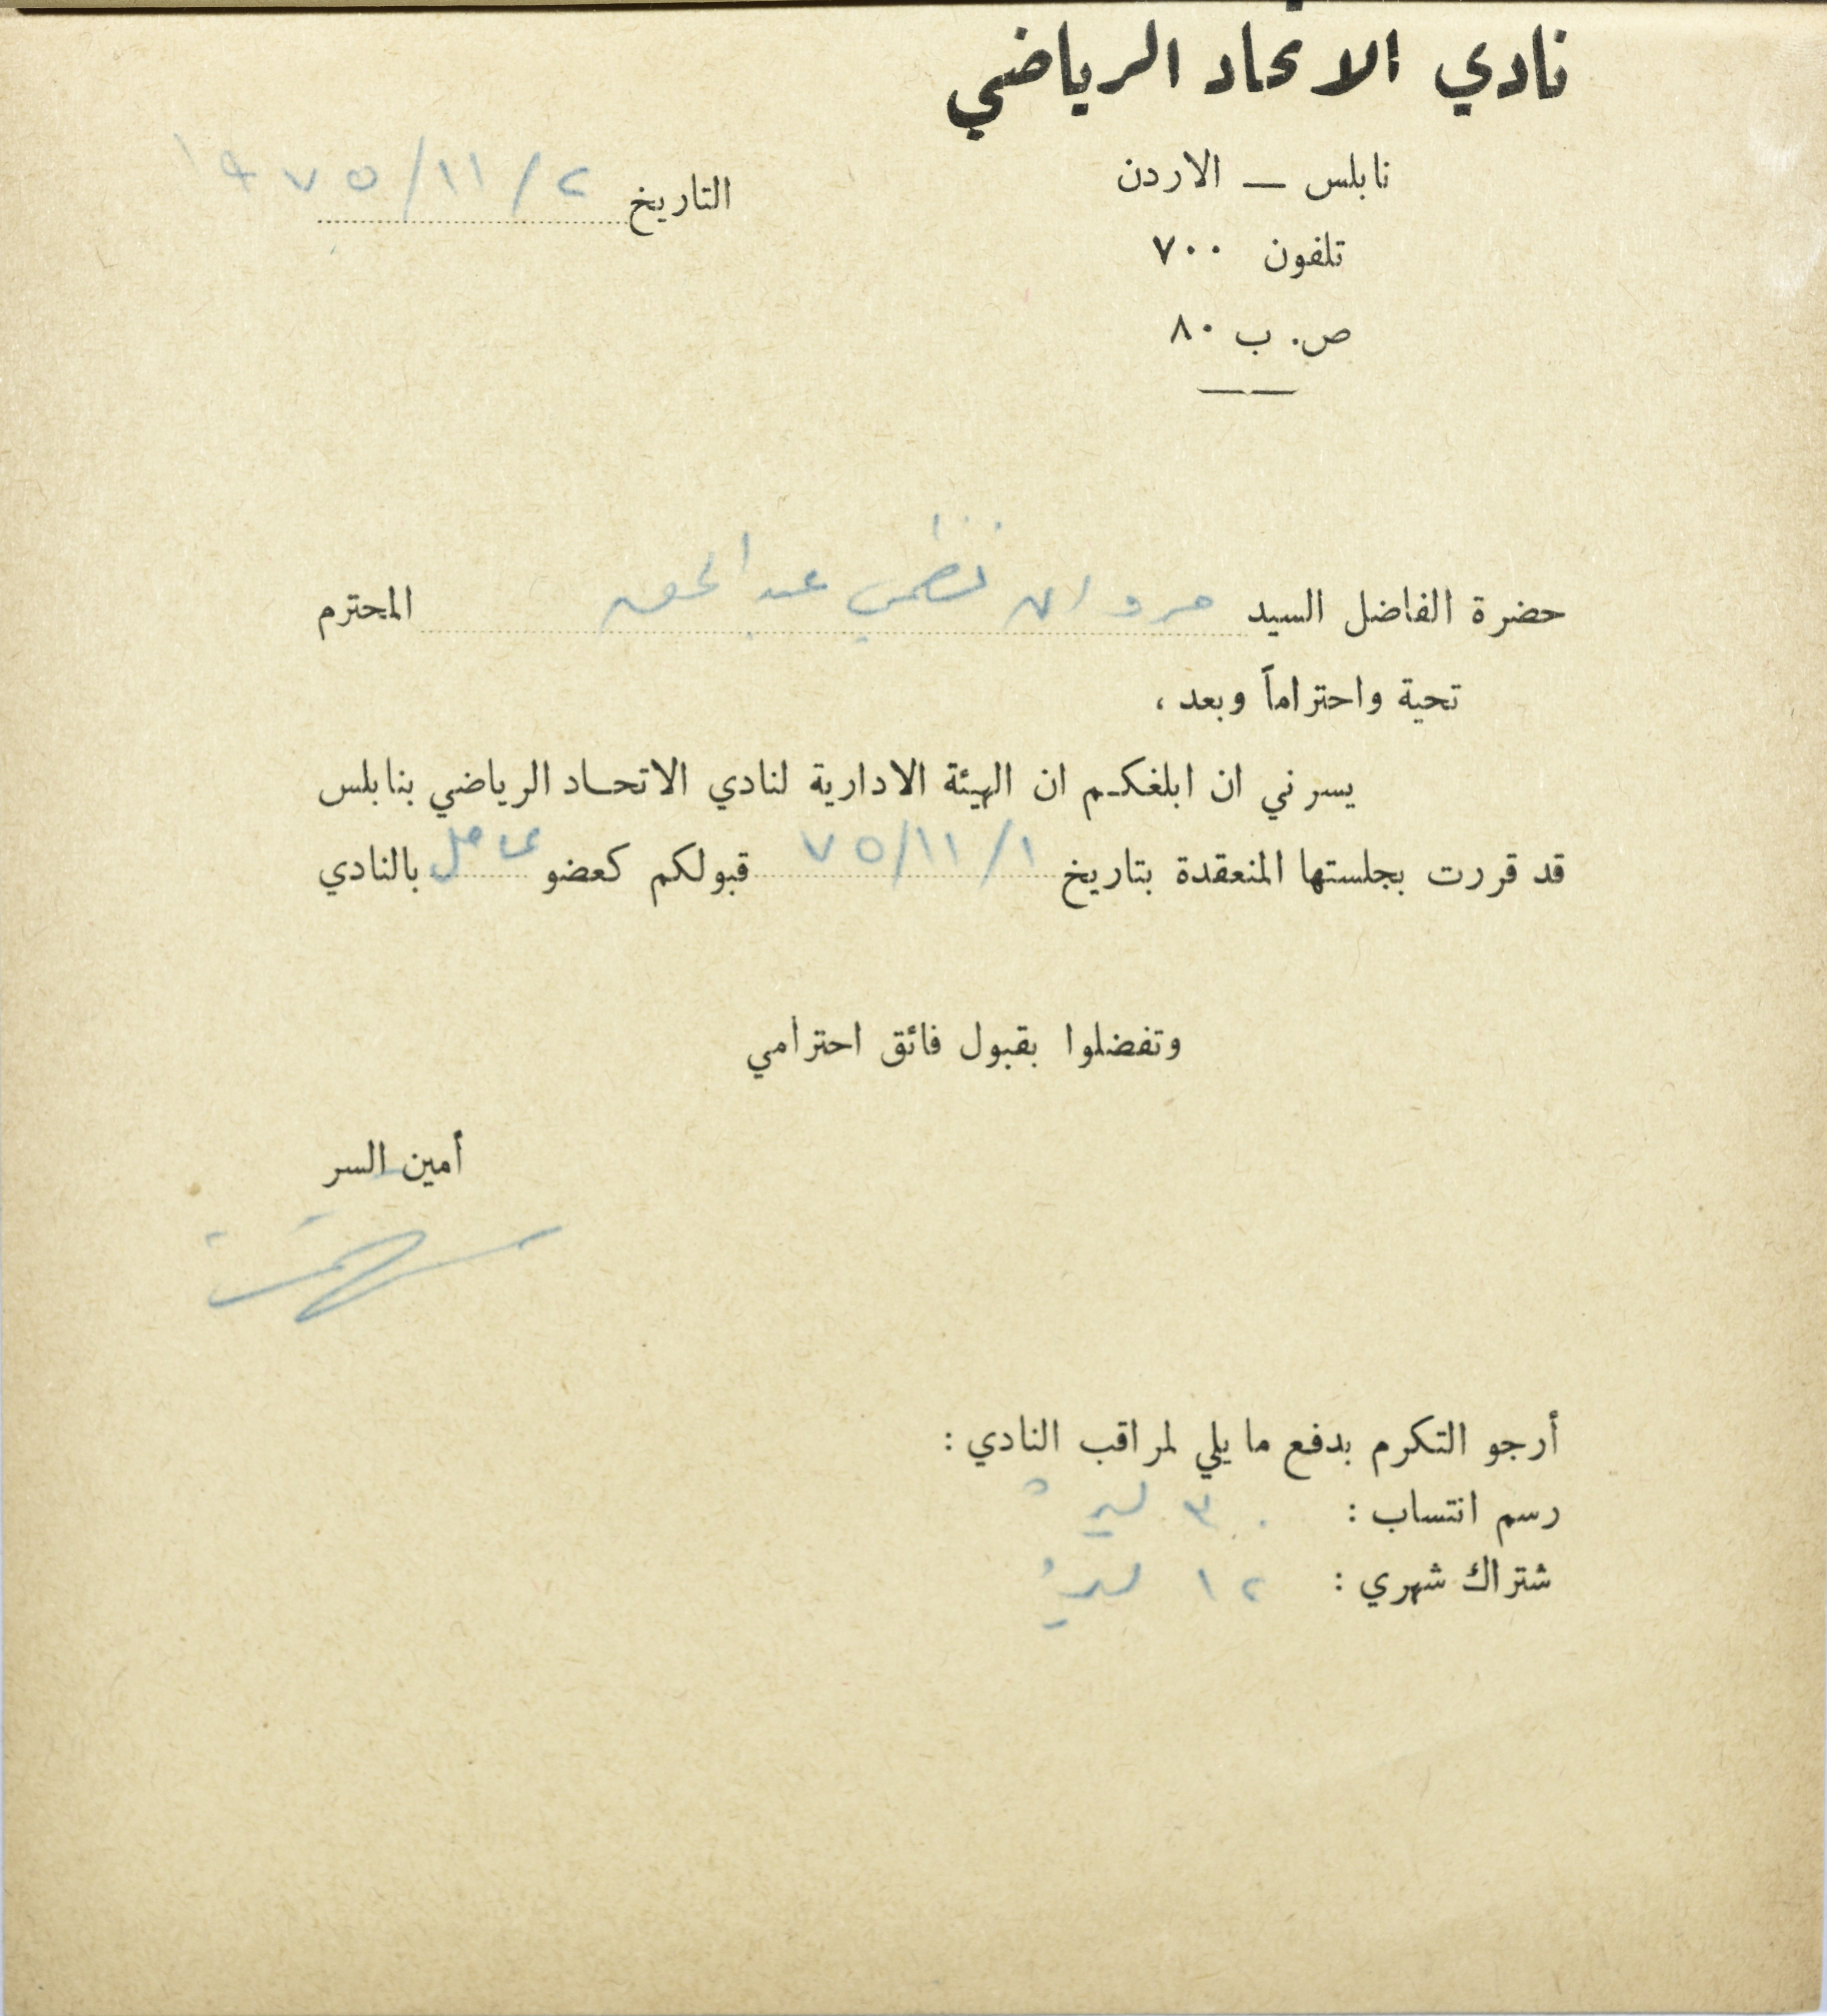 نادي الاتحاد الرياضي
نابلس — الاردن
التاريخ ٢/١١/١٩٧٥
تلفون ٧٠٠
ص. ب ٨٠
حضرة الفاضل السيد مروان نظمي عبد الحق المحترم
تحية واحتراماً وبعد ،
يسرني ان ابلغكم ان الهيئة الادارية لنادي الاتحاد الرياضي بنابلس
قد قررت بجلستها المنعقدة بتاريخ ١/١١/٧٥ قبولكم كعضو عامل بالنادي
وتفضلوا بقبول فائق احترامي
أمين السر
أرجو التكرم بدفع ما يلي لمراقب النادي :
رسم انتساب : ٣٠ ليرة
شتراك شهري : ١٢ ليرة